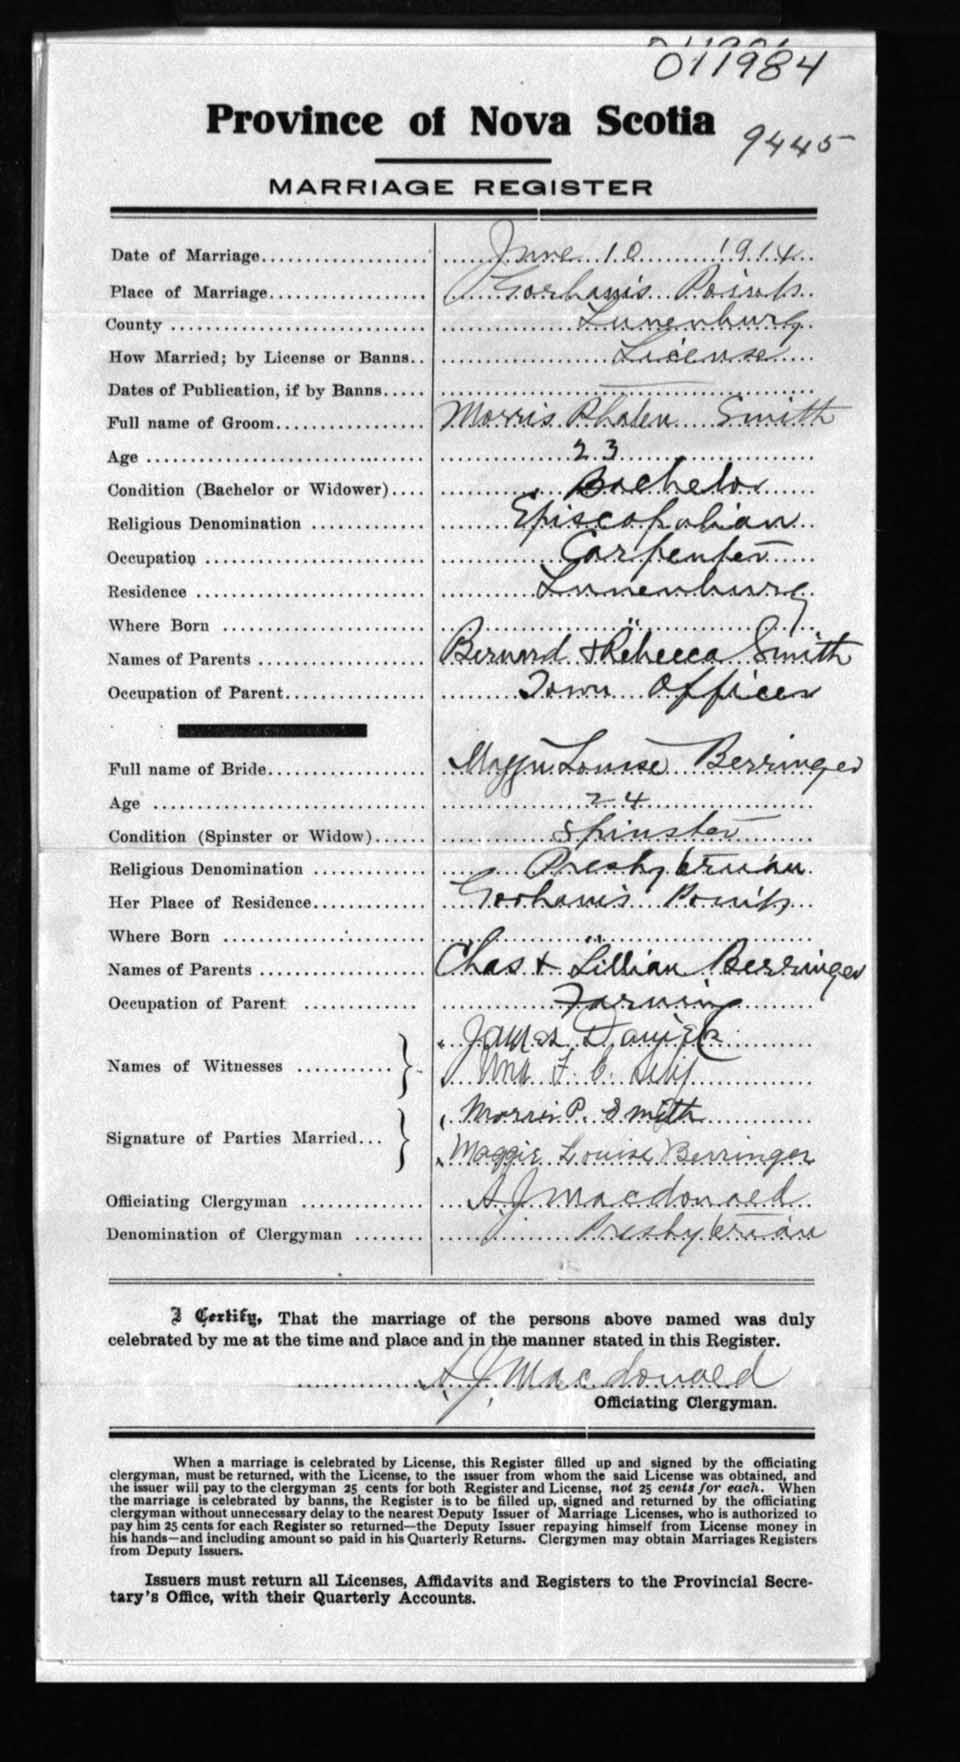 011984
Province of Nova Scotia
9445
MARRIAGE REGISTER
Date of Marriage.................... June 10 1914
Place of Marriage.................. Gorham's Point
County .............................. Lunenburg
How Married; by License or Banns.. License
Dates of Publication, if by Banns.....
Full name of Groom................. Morris Smith
Age ................................ 23
Condition (Bachelor or Widower).... Bachelor
Religious Denomination ............. Episcopalian
Occupation ......................... Carpenter
Residence .......................... Lunenburg
Where Born ....................... "
Names of Parents ................... Bernard & Rebecca Smith
Occupation of Parent................ Town Officer
Full name of Bride.................. Louise Berringer
Age ................................ 24
Condition (Spinster or Widow)...... Spinster
Religious Denomination ............. Presbyterian
Her Place of Residence............. Gorham's Point
Where Born ....................... "
Names of Parents ................... Chas & Lillian Berringer
Occupation of Parent ............. Farming
James
Names of Witnesses ........... F. C.
Morris P. Smith
Signature of Parties Married...
Maggie Louise Berringer
Officiating Clergyman .............. A. J. Macdonald
Denomination of Clergyman ........ Presbyterian
I Certify, That the marriage of the persons above named was duly
celebrated by me at the time and place and in the manner stated in this Register.
A. J. Macdonald
Officiating Clergyman.
When a marriage is celebrated by License, this Register filled up and signed by the officiating
clergyman, must be returned, with the License, to the issuer from whom the said License was obtained, and
the issuer will pay to the clergyman 25 cents for both Register and License, not 25 cents for each. When
the marriage is celebrated by banns, the Register is to be filled up, signed and returned by the officiating
clergyman without unnecessary delay to the nearest Deputy Issuer of Marriage Licenses, who is authorized to
pay him 25 cents for each Register so returned—the Deputy Issuer repaying himself from License money in
his hands—and including amount so paid in his Quarterly Returns. Clergymen may obtain Marriages Registers
from Deputy Issuers.
Issuers must return all Licenses, Affidavits and Registers to the Provincial Secre-
tary's Office, with their Quarterly Accounts.